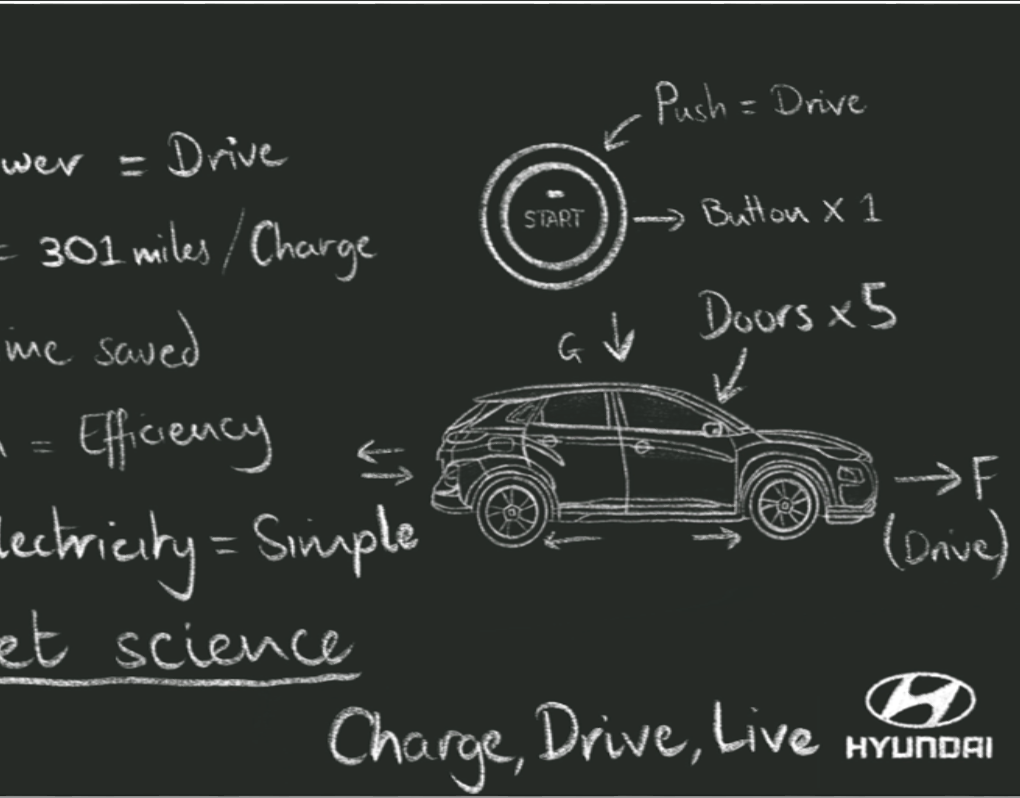 wer = Drive
= 301 miles / Charge
ime saved
= Efficiency
lectricity = Simple
et science
Push = Drive
START
Button X 1
Doors x 5
G
F
(Drive)
Charge, Drive, Live
HYUNDAI